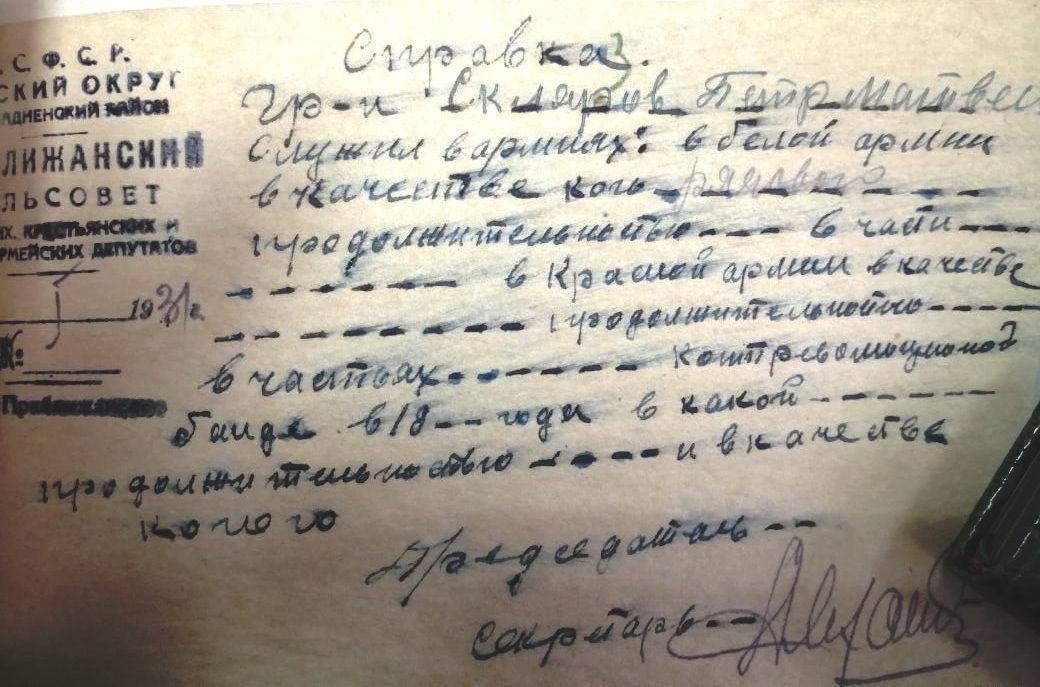 . С. Ф. С. Р.
СКИЙ ОКРУГ
АДНЕНСКИЙ РАЙОН
ЛИЖАНСКИЙ
ЛЬСОВЕТ
ИХ, КРЕСТЬЯНСКИХ и
РМЕЙСКИХ ДЕПУТАТОВ
1931г.
№
Справка.
Гр-н Скляров Петр Матвеe
Служил в армиях: в белой армии
в качестве кого рядового
продолжительностью --- в части ---
------- в Красной армии в качестве
-------- продолжительностью -----
в частьях ------- контрреволюционой
банде в 18 -- года в какой -------
продолжительностью ----- и в качестве
когого
Председатель --
Секретарь --